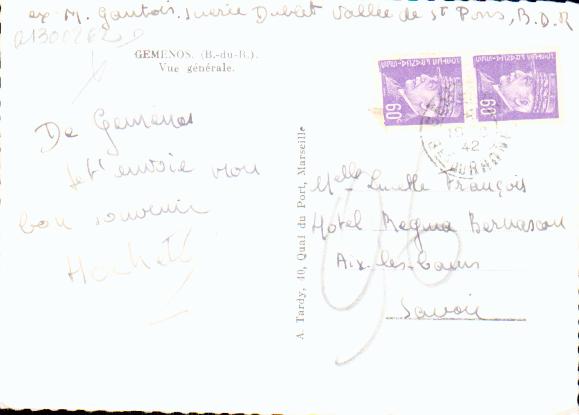 ex. M. Gautois. Sucrie Dublet Vallée de St Pons, B.D.R
GEMENOS. (B.-du-R.).
Vue générale.
De Gemenos
je t'envoie mon
bon souvenir
A. Tardy, 40, Quai du Port, Marseille
60
60
42
Melle Lucette François
Hotel Regina Bernascon
Aix-les-bains
Savoie